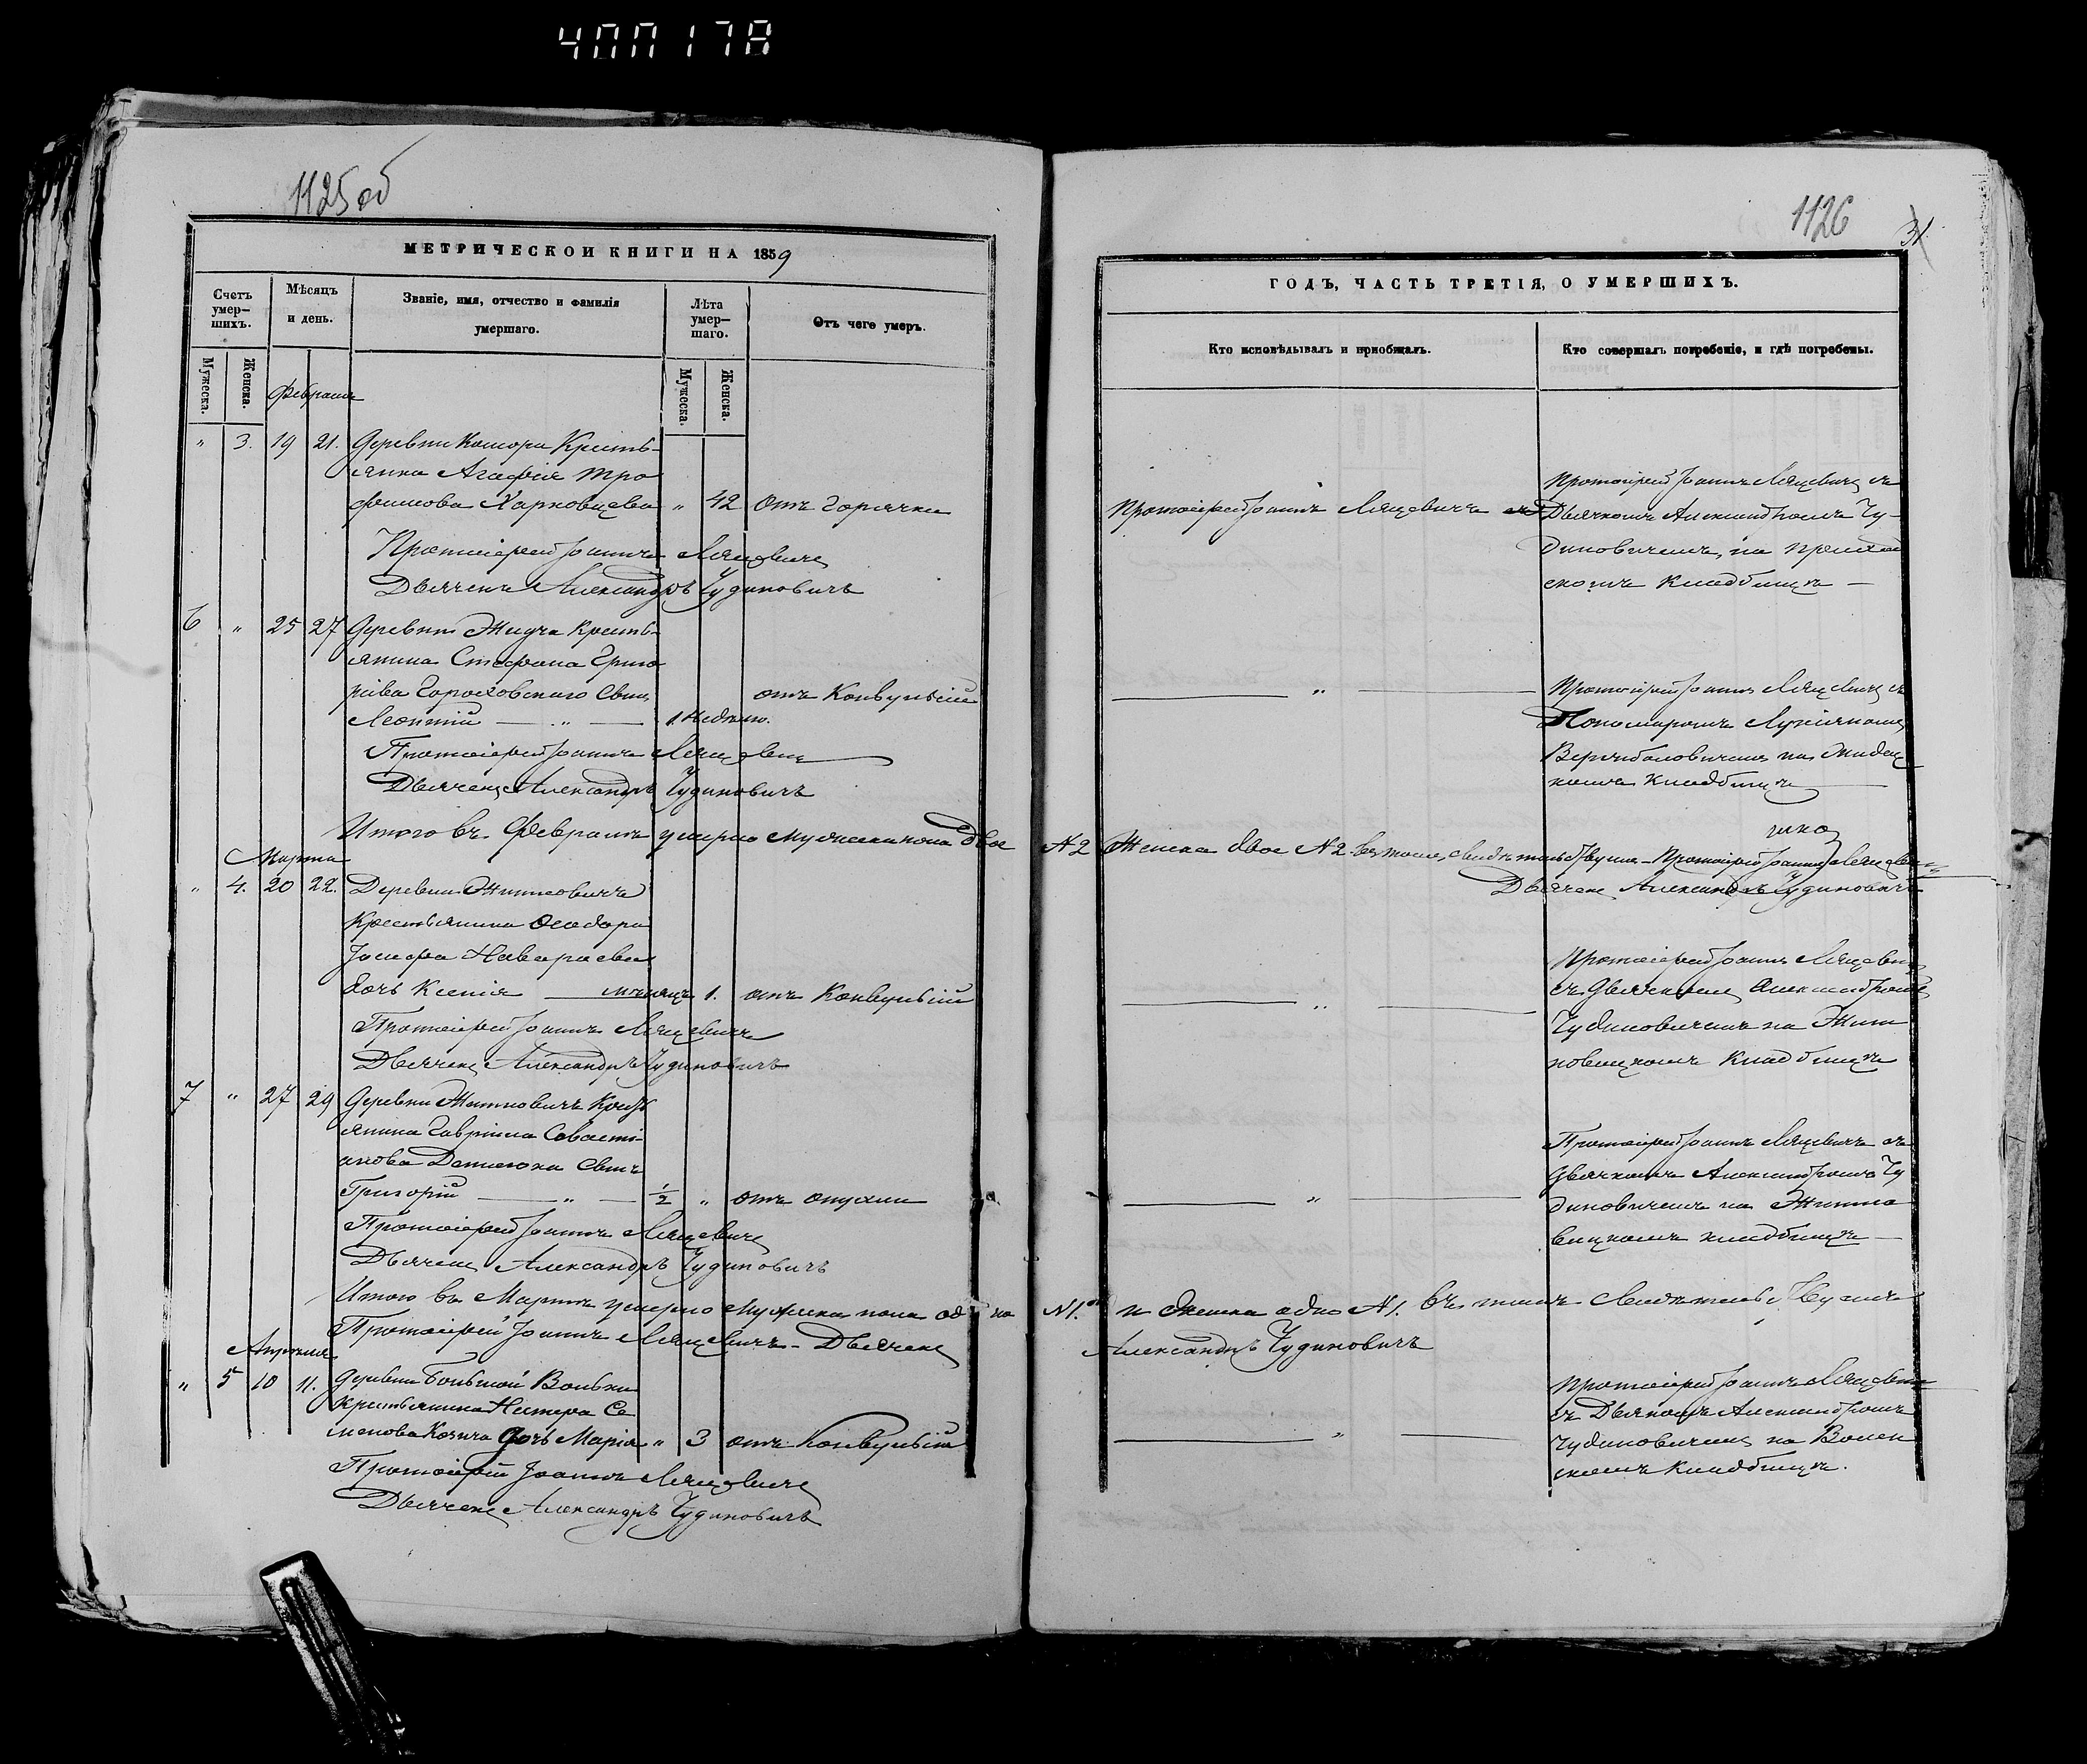 1125 об
МЕТРИЧЕСКОЙ КНИГИ НА 1859
Счетъ умер—шихъ.
Мѣсяцъ и день.
Званіе, имя, отчество и фамилія умершаго.
Лѣта умер—шаго.
Отъ чего умеръ.
Мужеска.
Женска.
Мужеска.
Женска.
Февраля
" 3. 19 21. Деревни Комора Кресть-
янка Агафія Тро
фимова Харковцева " 42 отъ горячки
Протоіерей Іоаннъ Лящевичъ
Дьячекъ Александръ Чудиновичъ
6 " 25 27 Деревни Жидча Кресть-
янина Стефана Григо
ріева Гороховскаго сынъ отъ Конвульсій
Леонтій — " — 1 недѣлю.
Протоіерей Іоаннъ Лящевичъ
Дьячекъ Александръ Чудиновичъ
Итого въ Февралѣ умерло мужеска пола двое
Марта
" 4. 20 22. Деревни Житновичъ
Крестьянина Ѳеодора
Іосифа
дочь Ксенія — мѣсяцъ 1. отъ Конвульсій
Протоіерей Іоаннъ Лящевичъ
Дьячекъ Александръ Чудиновичъ
7 " 27 29 Деревни Житновичъ Кресть
янина Гавріила Савасті-
анова сынъ
Григорій — " — 1/2 " отъ опухли
Протоіерей Іоаннъ Лящевичъ
Дьячекъ Александръ Чудиновичъ
Итого въ Мартѣ умерло мужеска пола одно
Протоіерей Іоаннъ Лящевичъ - Дьячекъ
Апрѣля
" 5 10 11. Деревни Большой Вольки
Крестьянина Нестера Се
менова Козича дочь Марія " 3 отъ Конвульсій
Протоіерей Іоаннъ Лящевичъ
Дьячекъ Александръ Чудиновичъ
1126
31
ГОДЪ, ЧАСТЬ ТРЕТІЯ, О УМЕРШИХЪ.
Кто исповѣдывалъ и пріобщалъ.
Кто совершалъ погребеніе, и гдѣ погребены.
Протоіерей Іоаннъ Лящевичъ
Протоіерей Іоаннъ Лящевичъ съ
Дьячкомъ Александромъ Чу-
диновичемъ, на приход
скомъ кладбищѣ —
— " —
Протоіерей Іоаннъ Лящевичъ съ
Пономаромъ Лукіяномъ
Вержбаловичемъ на Жидец
комъ кладбищѣ —
№ 2 Женска двое № 2. въ томъ свидѣтельствуемъ - Протоіерей Іоаннъ Лящевичъ
Дьячекъ Александръ Чудиновичъ
— " —
Протоіерей Іоаннъ Лящевичъ
съ Дьячкомъ Александромъ
Чудиновичемъ на Жит
новицкомъ кладбищѣ
— " —
Протоіерей Іоаннъ Лящевичъ съ
Дьячкомъ Александромъ Чу
диновичемъ на Житно
вицкомъ кладбищѣ —
№ 1. и женска одно № 1. въ томъ свидѣтельствуемъ
Александръ Чудиновичъ
— " —
Протоіерей Іоаннъ Лящевичъ
съ Дьячкомъ Александромъ
Чудиновичемъ на Волен
скомъ кладбищѣ.